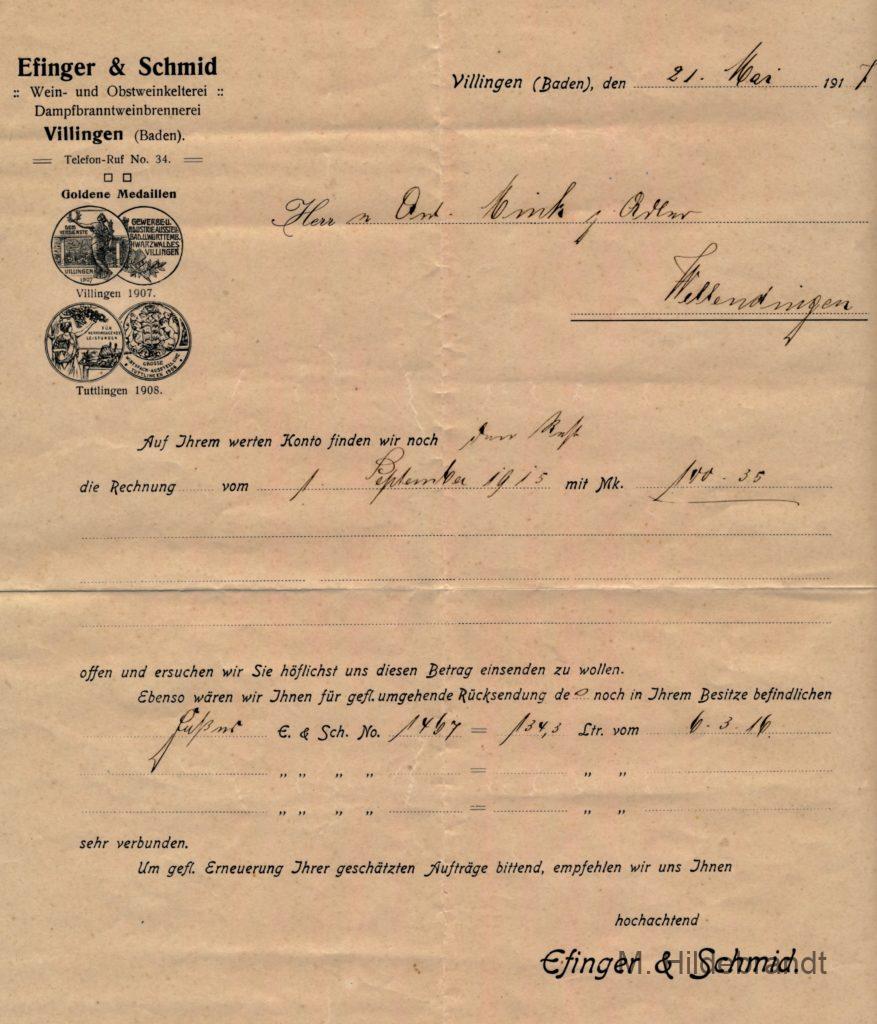 Efinger & Schmid
:: Wein- und Obstweinkelterei ::
Dampfbranntweinbrennerei
Villingen (Baden).
Telefon-Ruf No. 34.
Goldene Medaillen
DEM VERDIENSTE
VILLINGEN 1907
GEWERBE-U. INDUSTRIE-AUSSTELL
VILLINGEN
Villingen 1907.
FÜR HERVORRAGENDE LEISTUNGEN
GROSSE
TUTTLINGEN 1908
Tuttlingen 1908.
Villingen (Baden), den 21. Mai 1917
Herr Mink z Adler
Wellendingen
Auf Ihrem werten Konto finden wir noch den Rest
die Rechnung vom 1. September 1915 mit Mk. 100.35
offen und ersuchen wir Sie höflichst uns diesen Betrag einsenden zu wollen.
Ebenso wären wir Ihnen für gefl. umgehende Rücksendung de noch in Ihrem Besitze befindlichen
E. & Sch. No. 1467 = 134,3 Ltr. vom 6.3.16.
„ „ „ „ = „ „
„ „ „ „ = „ „
sehr verbunden.
Um gefl. Erneuerung Ihrer geschätzten Aufträge bittend, empfehlen wir uns Ihnen
hochachtend
Efinger & Schmid.
M. Hildebrandt